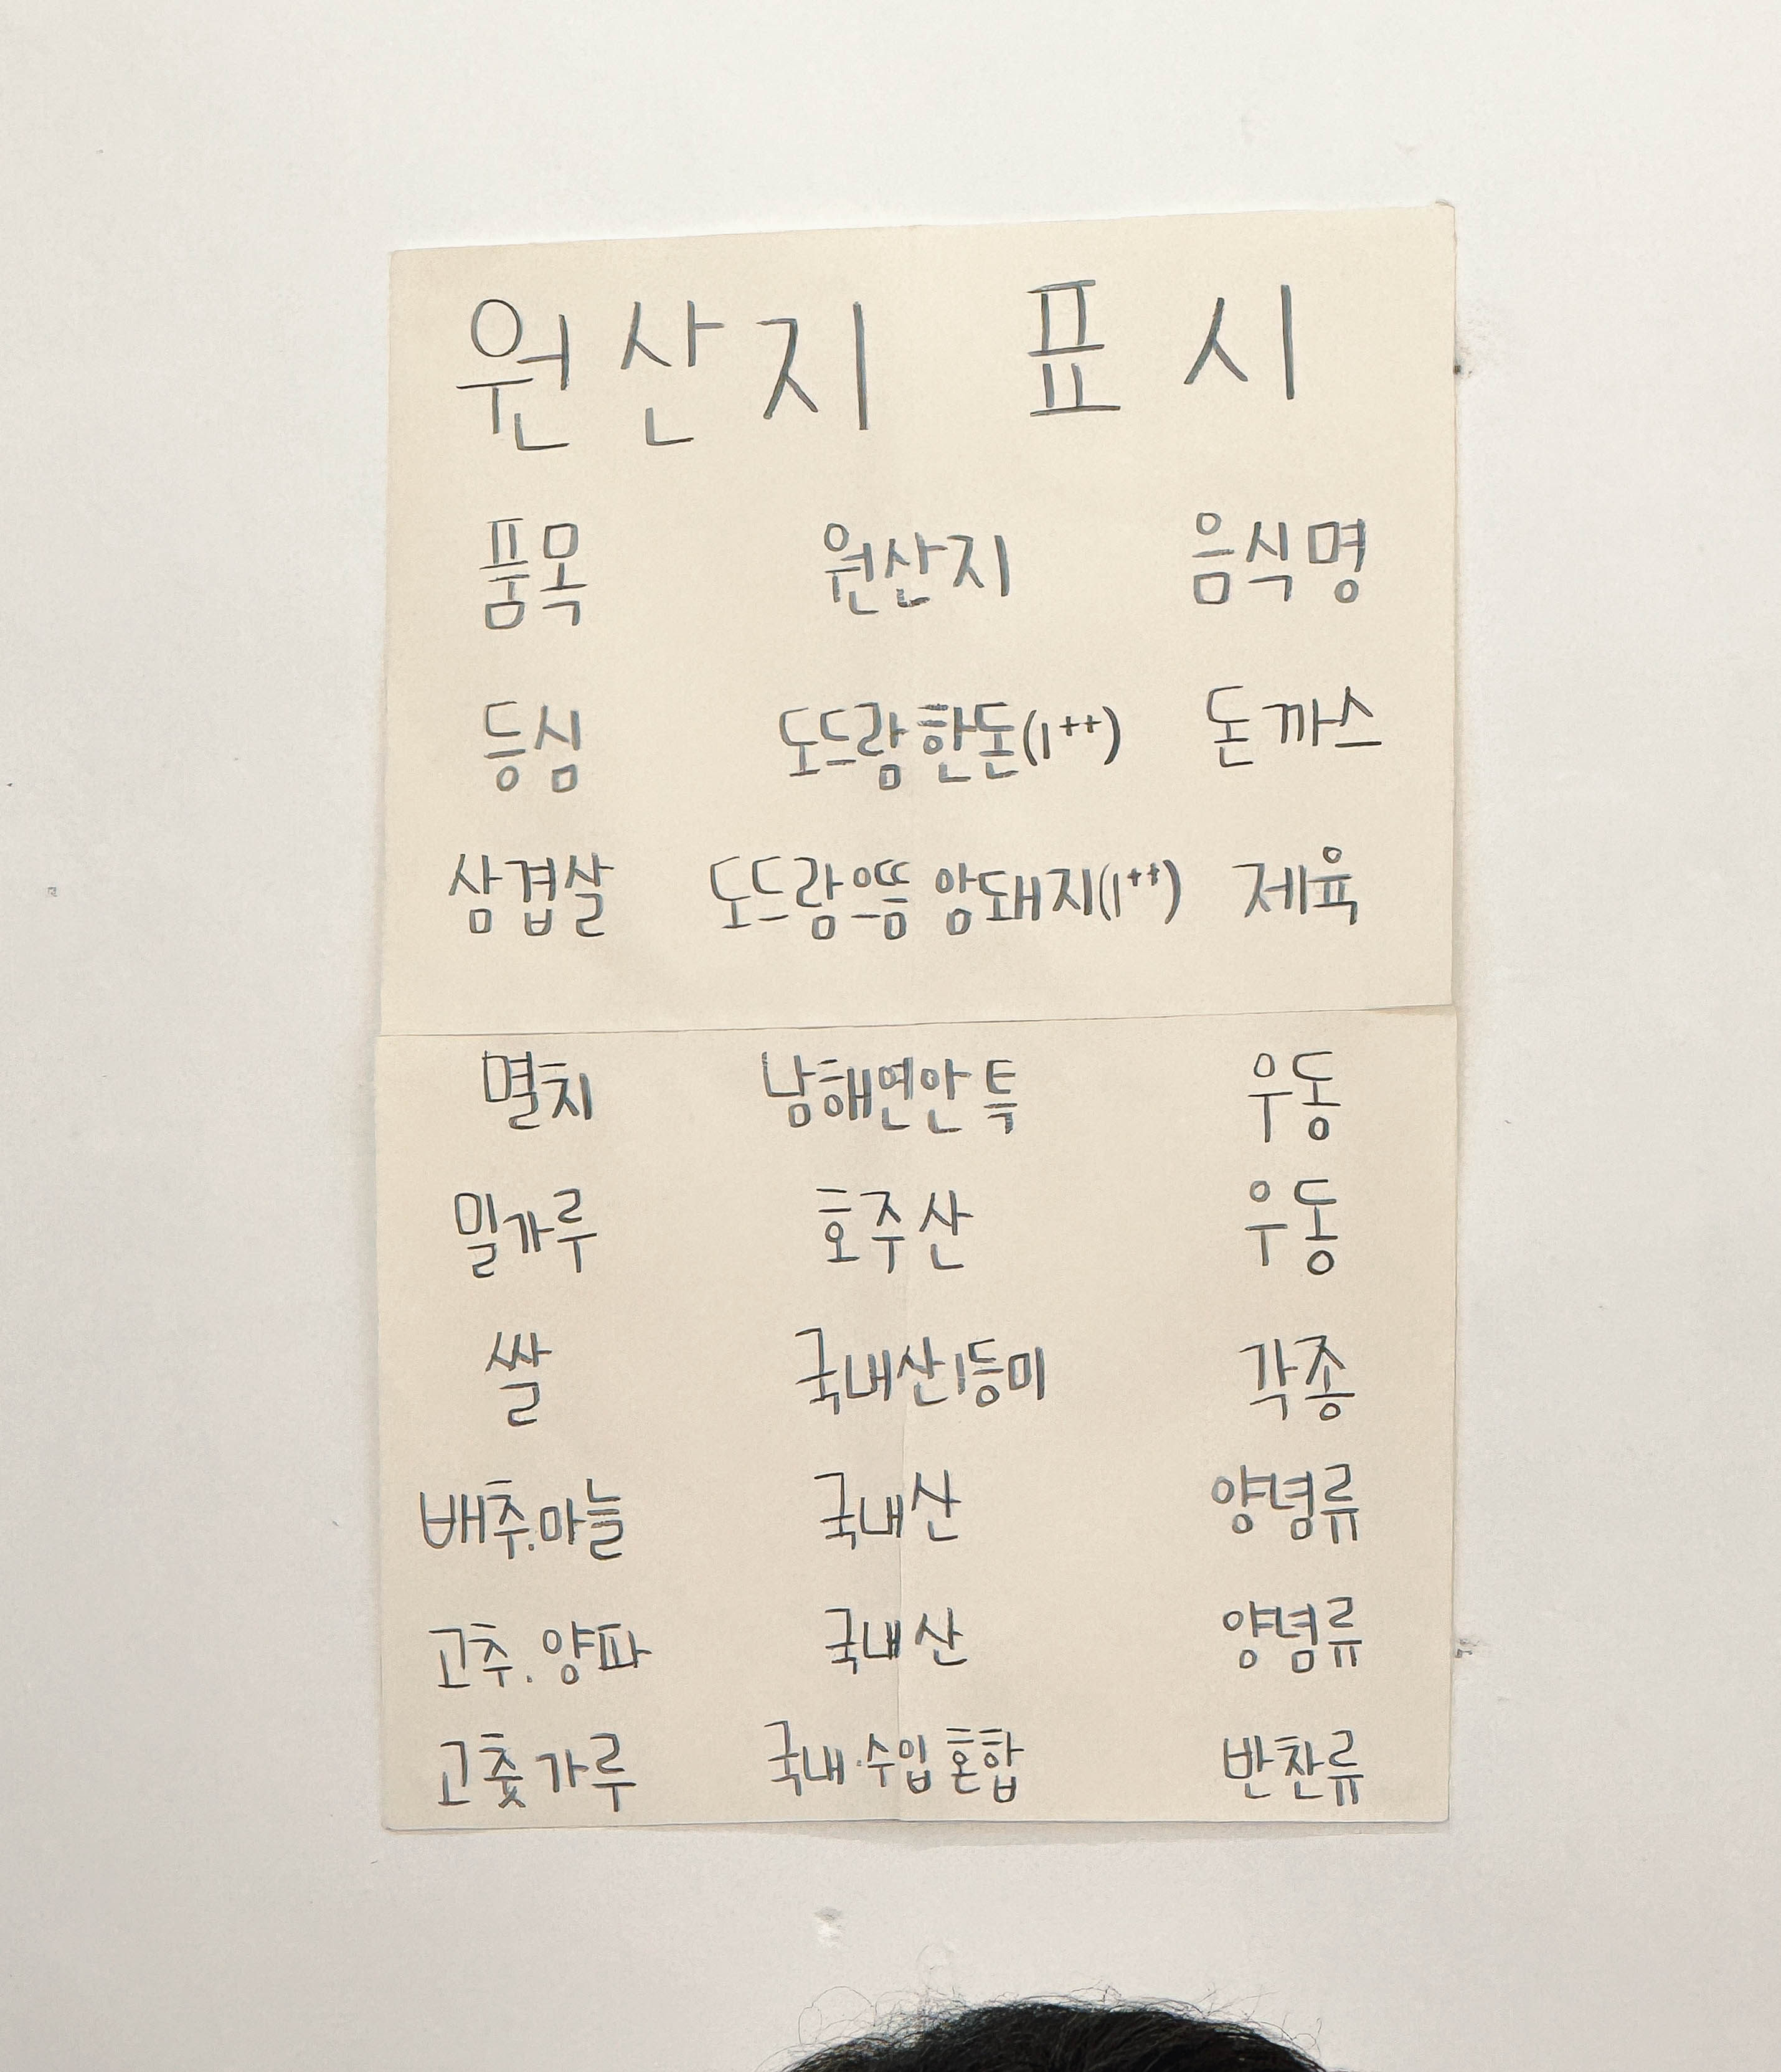 원산지 표시
품목 원산지 음식명
등심 도드람한돈(1++) 돈까스
삼겹살 도드람으뜸 암돼지(1++) 제육
멸치 남해연안특 우동
밀가루 호주산 우동
쌀 국내산1등미 각종
배추.마늘 국내산 양념류
고추.양파 국내산 양념류
고춧가루 국내·수입 혼합 반찬류